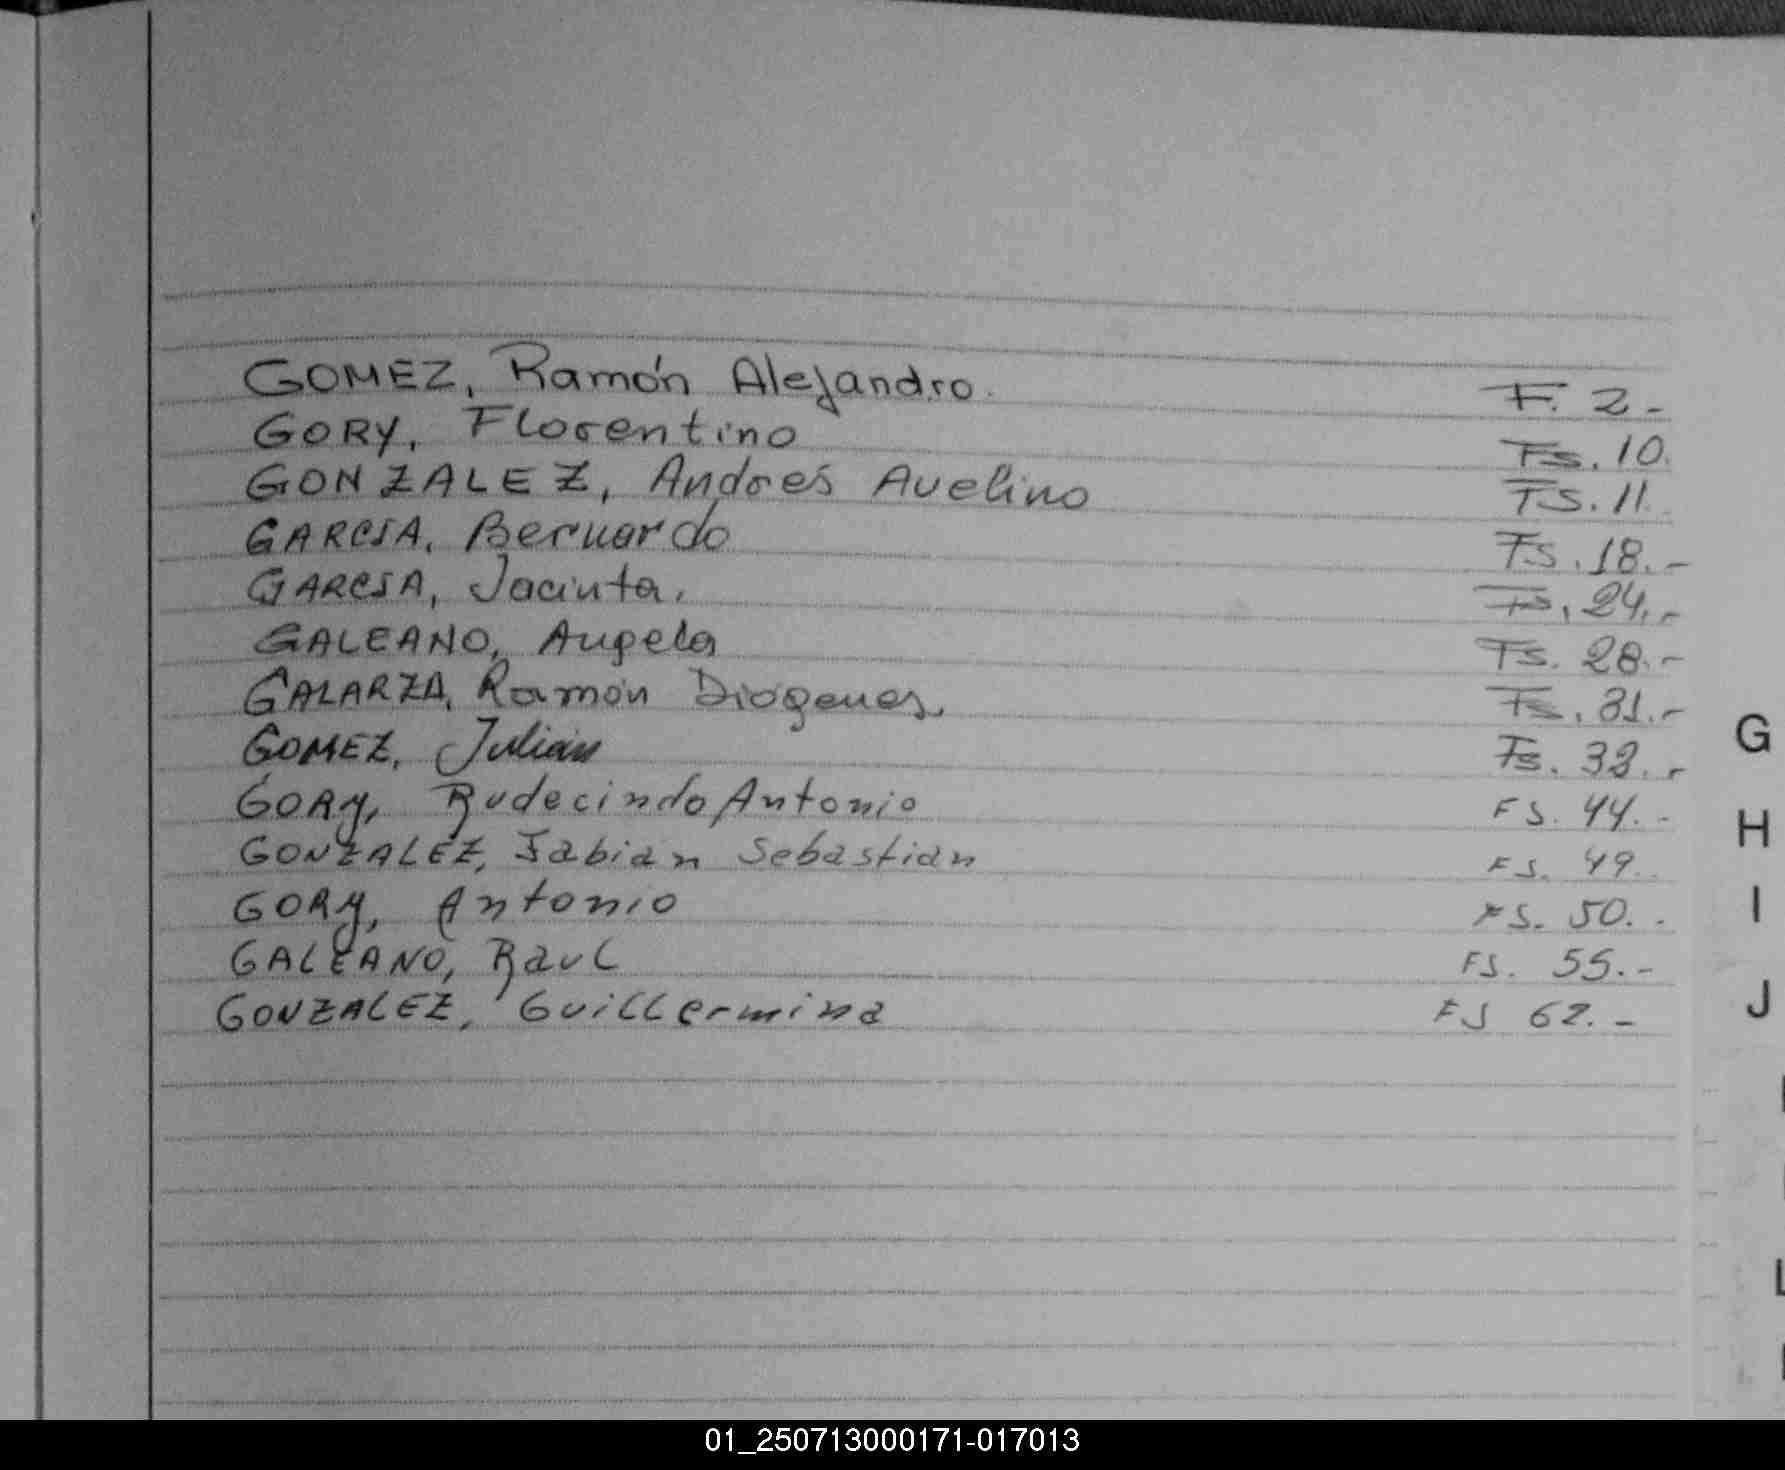 GOMEZ, Ramón Alejandro. F. 2-
GORY, Florentino Fs. 10.
GONZALEZ, Andres Avelino FS. 11.
GARCIA, Bernardo FS. 18.-
GARCIA, Jacinta. Fs. 24.-
GALEANO, Angela FS. 28.-
GALARZA, Ramón Diogenes. Fs. 31.-
G GOMEZ, Julian Fs.
GORY, Rudecindo Antonio FS. 44.-
H
GONZALEZ, Fabian Sebastian FS. 49.
I
GORY, Antonio FS. 50.-
GALEANO, Raul FS. 55.-
J
GONZALEZ, Guillermina FS 62.-
L
01_250713000171-017013